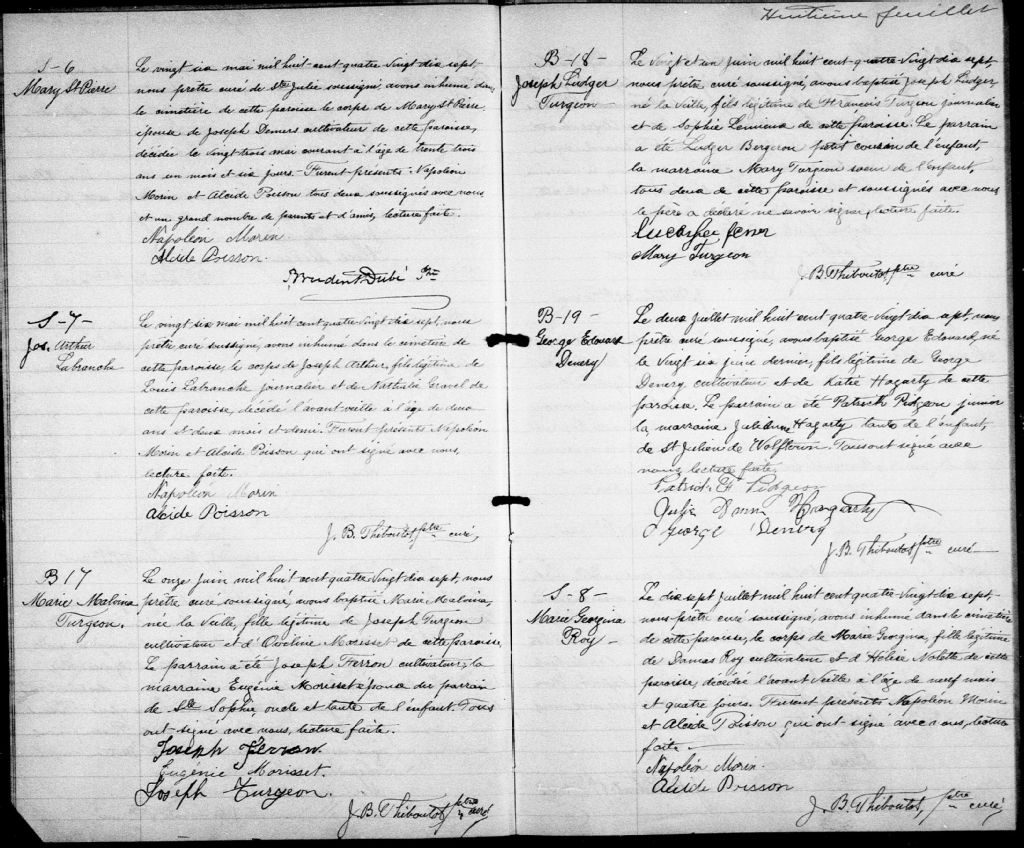 S-6
Mary St Pierre
Le vingt six mai mil huit-cent quatre vingt dix sept,
nous prêtre curé de Ste Julie soussigné avons inhumé dans
le cimetière de cette paroisse le corps de Mary St Pierre
épouse de Joseph Demers cultivateur de cette paroisse,
décédée le vingt trois mai courant à l'âge de trente trois
ans un mois et six jours. Furent présents: Napoléon
Morin et Alcide Poisson tous deux soussignés avec nous
et un grand nombre de parents et d'amis, lecture faite.
Napoléon Morin.
Alcide Poisson.
Prudent Dubé Ptre
S-7-
Jos. Arthur
Labranche
Le vingt six mai mil huit cent quatre vingt dix sept, nous
prêtre curé soussigné, avons inhumé dans le cimetière de
cette paroisse, le corps de Joseph Arthur, fils légitime de
Louis Labranche journalier et de Nathalie Gravel de
cette paroisse, décédé l'avant veille à l'âge de deux
ans et deux mois et demi. Furent présents Napoléon
Morin et Alcide Poisson qui ont signé avec nous,
lecture faite.
Napoléon Morin
Alcide Poisson
J. B. Thiboutot ptre curé,
B 17
Marie Malvina
Turgeon.
Le onze juin mil huit cent quatre vingt dix sept, nous
prêtre curé soussigné, avons baptisé Marie Malvina,
née la veille, fille légitime de Joseph Turgeon
cultivateur et d'Oveline Morisset de cette paroisse.
Le parrain a été Joseph Ferron cultivateur, la
marraine Eugénie Morisset épouse du parrain
de Ste Sophie, oncle et tante de l'enfant. Tous
ont signé avec nous, lecture faite.
Joseph Ferron
Eugénie Morisset.
Joseph Turgeon.
J. B. Thiboutot, ptre curé
Huitième feuillet
B-18-
Joseph Ludger
Turgeon
Le vingt et un juin mil huit cent quatre vingt dix sept
nous prêtre curé soussigné, avons baptisé Joseph Ludger,
né la veille, fils légitime de François Turgeon journalier
et de Sophie Lemieux de cette paroisse. Le parrain
a été Ludger Bergeron petit cousin de l'enfant,
la marraine Mary Turgeon soeur de l'enfant,
tous deux de cette paroisse et soussignés avec nous
le père a déclaré ne savoir signer, lecture faite.
Mary Turgeon
J. B. Thiboutot ptre curé
B-19
George Edouard
Denery
Le deux juillet mil huit cent quatre vingt dix sept, nous
prêtre curé soussigné, avons baptisé George Edouard, né
le vingt six juin dernier, fils légitime de George
Denery cultivateur et de Katie Hagarty de cette
paroisse. Le parrain a été Patrick Pidgeon junior
la marraine Hagarty tante de l'enfant,
de St Julien de Wolftown. Tous ont signé avec
nous, lecture faite.
Patrick Pidgeon
Julie Hagarty
George Denery
J. B. Thiboutot ptre curé
S-8-
Marie Georgina
Roy-
Le dix sept juillet mil huit cent quatre vingt dix sept,
nous prêtre curé soussigné, avons inhumé dans le cimetière
de cette paroisse, le corps de Marie Georgina, fille légitime
de Damas Roy cultivateur et d'Hélise Nolette de cette
paroisse, décédée l'avant veille à l'âge de neuf mois
et quatre jours. Furent présents Napoléon Morin
et Alcide Poisson qui ont signé avec nous, lecture
faite-
Napoléon Morin.
Alcide Poisson
J. B. Thiboutot, ptre curé,